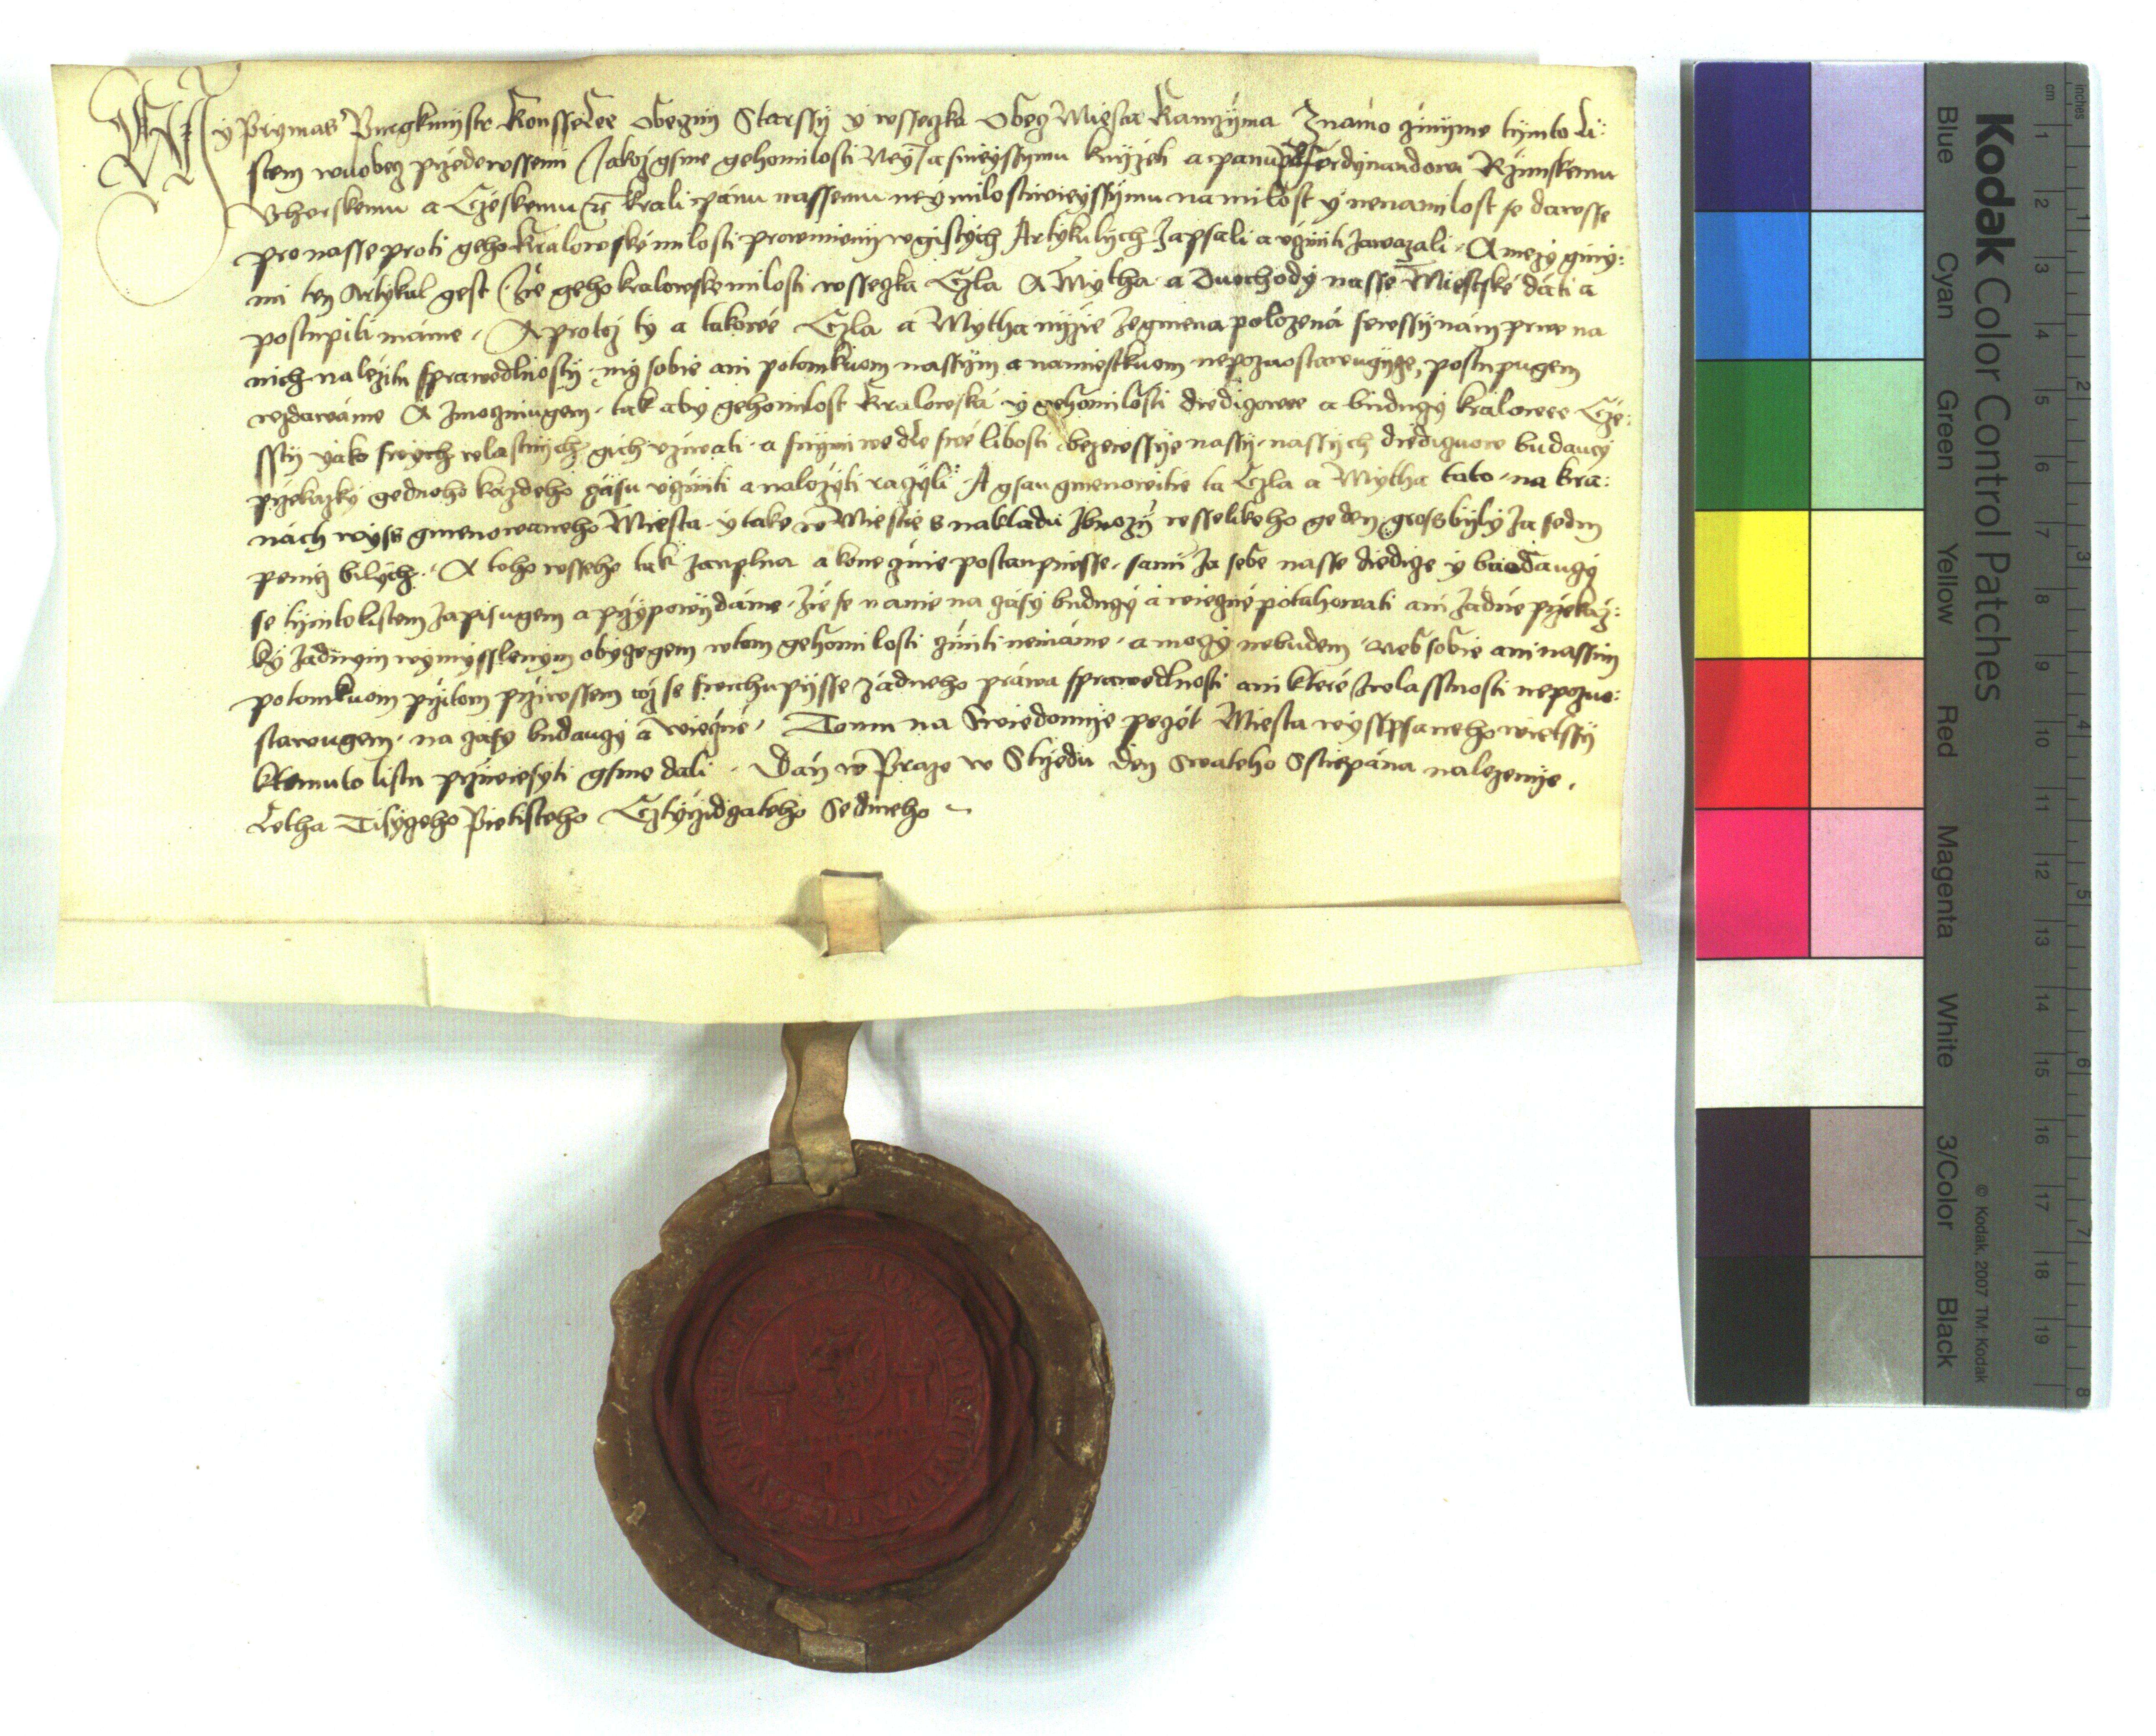 My Prymas Purgkmistr Konsselee Obeczny Starssy y wsseczka Obecz Miesta Kaurzyma Znamo czinyme tymto Li:
stem wuobecz przedewssemi Jakoz gsme gehomilosti Ney Jasneyssymu knizeti a panu panu Ferdynandowi Rzimskemu
Vherskemu a Czeskemu &c Krali panu nassemu neymilostiwieyssymu na milost y nenamilost se dawsse
pro nasse proti geho Kralowske milosti prowinieny w gistych Artykulych zapsali a vcziniti zawazali. A mezy giny:
mi ten Artykul gest Ze geho kralowske milosti wsseczka Czla A Mytha a Duochody nasse Miestske dati a
postupiti mame. A protoz ty a takowe Czla a Mytha nyzie zegmena polozena sewssy nam prwe na
nich nalezitu sprawedlnosty my sobie ani potomkuom nassym a namiestkuom nepozuostawugicze, postupugem
wzdawame A zmoczniugem. tak aby gehomilost Kralowska y gehomilosti diediczowee a buduczy kralowee Cze:
ssty yako swych wlastnych gich vzwati. a s nymi wedle swe libosti bezewssye nassy. nassych diediczuow budaucy
przekazky gednoho kazdeho czasu vcziniti a nalozyti raczyli A gsau gmenowitie ta Czla a Mytha tato. na kra:
nach wyss gmenowaneho Miesta. y take w Miestie s nakladu zbuozy wsselikeho geden gross byly za sedm
peniz bilych. A toho wsseho tak zauplna a koneczne postaupiwsse. sami za sebe nasse diedicze y budauczy
se tymto listem zapisugem a przypowydame. Ze se nanie na czasy buduczy a wieczne potahowati ani zadne przekaz:
ky zadnym wymysslenym obyczegem wtom gehomilosti cziniti nemame. a moczy nebudem. neb sobie ani nassim
potomkuom przitom przi wssem coz se swrchu pysse zadneho prawa sprawedlnosti ani ktere zwlasstnosti nepozuo:
stawugem. na czasy budauczy a wieczne. Tomu na Swiedomije peczet Miesta wysspsaneho wietssy
ktomuto listu przywiesyti gsme dali. Dan w Praze w Strzedu den Swateho Sstiepana nalezenije.
Letha Tisyczeho Pietisteho Cztyrzidczateho Sedmeho
Kodak Color Control Patches
Blue Cyan Green Yellow Red Magenta White 3/Color Black
© Kodak, 2007 TM: Kodak
cm 1 2 3 4 5 6 7 8 9 10 11 12 13 14 15 16 17 18 19
inches 1 2 3 4 5 6 7 8